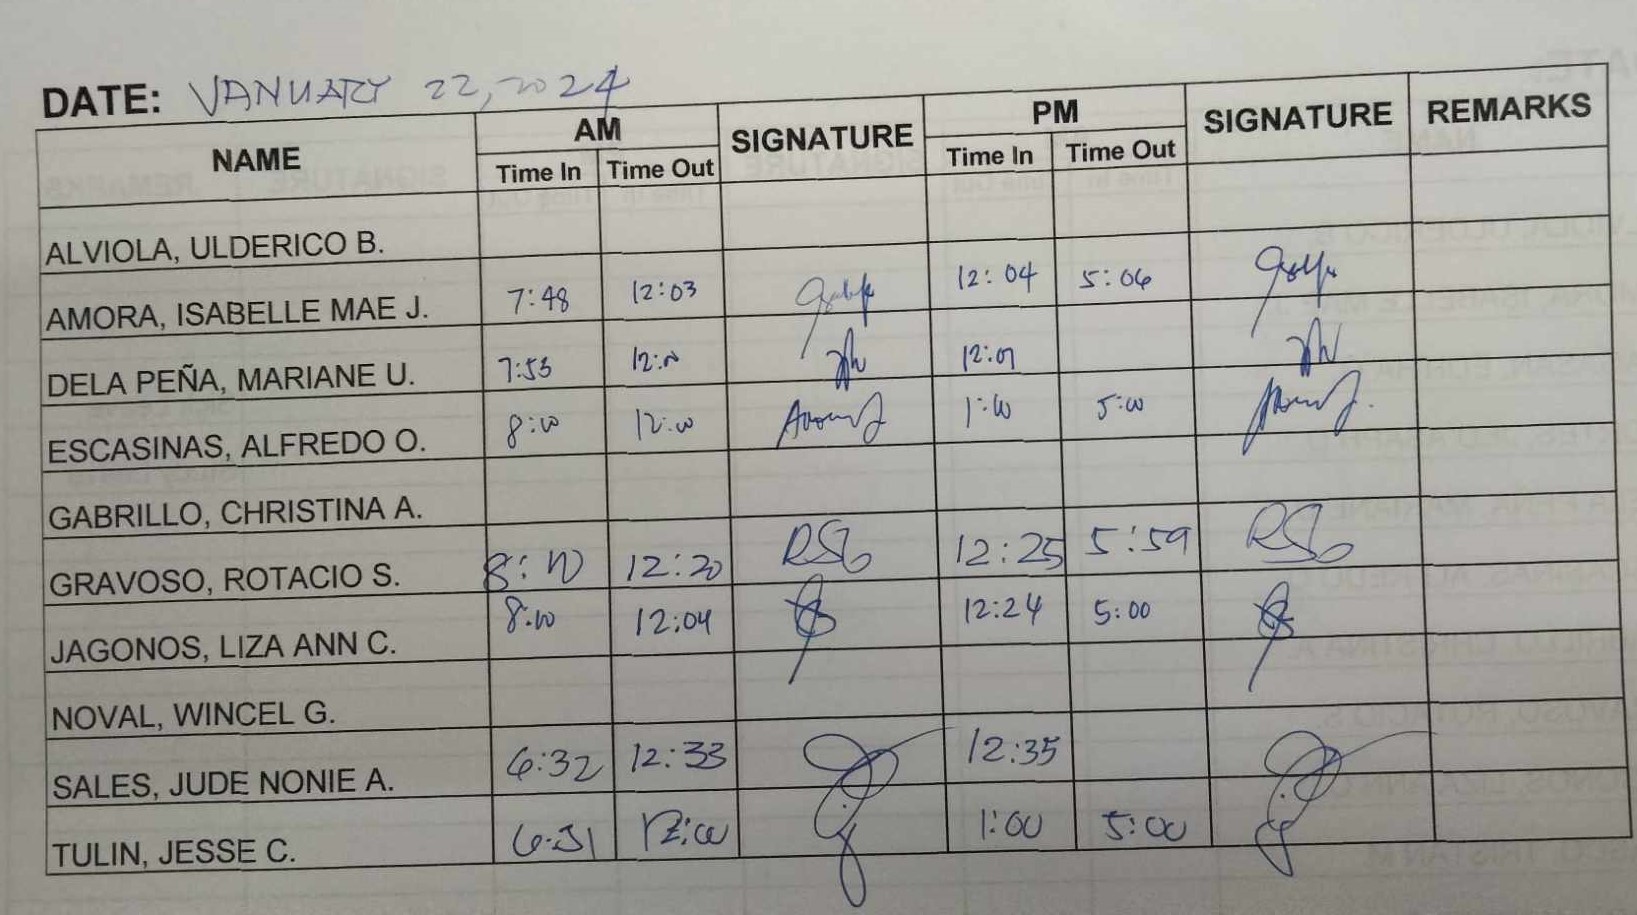 DATE: JANUARY 22, 2024
NAME AM SIGNATURE PM SIGNATURE REMARKS
Time In Time Out Time In Time Out
ALVIOLA, ULDERICO B.
AMORA, ISABELLE MAE J. 7:48 12:03 12:04 5:06
DELA PEÑA, MARIANE U. 7:53
ESCASINAS, ALFREDO O. 8:00 12:00 1:00 5:00
GABRILLO, CHRISTINA A.
GRAVOSO, ROTACIO S. 12:20 RSG 12:25 5:59 RSG
JAGONOS, LIZA ANN C. 8:00 12:04 12:24 5:00
NOVAL, WINCEL G.
SALES, JUDE NONIE A. 6:32 12:33 12:35
TULIN, JESSE C. 6:31 12:00 1:00 5:00